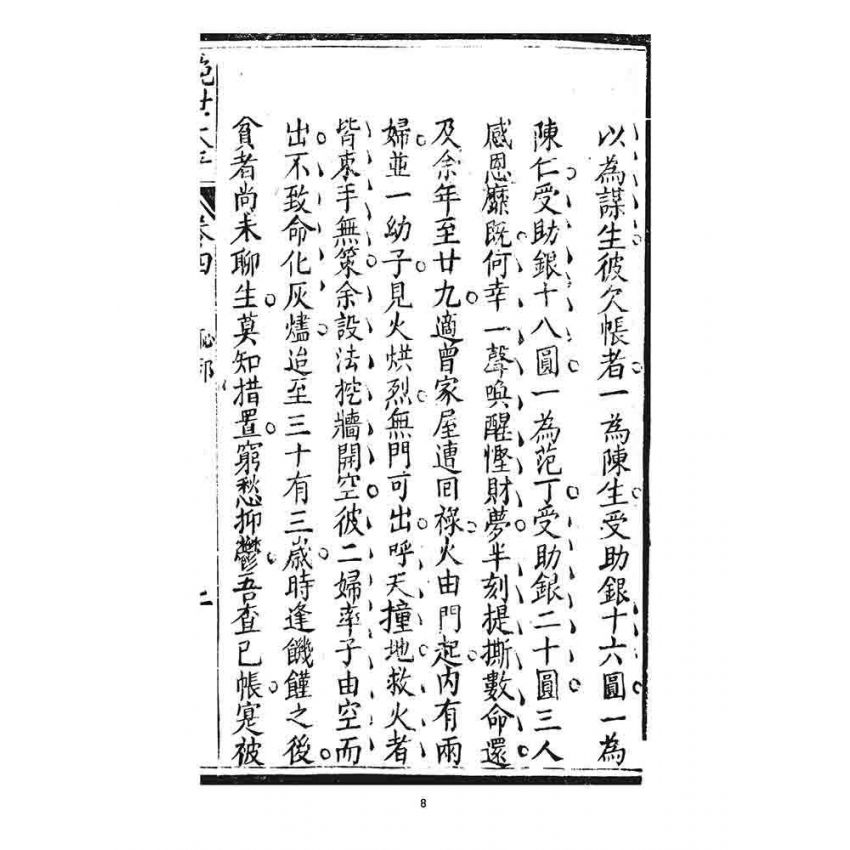 以為謀生彼欠帳者一為陳生受助銀十六圓一為
陳仁受助銀十八圓一為范丁受助銀二十圓三人
感恩靡既何幸一聲喚醒慳財夢半刻提撕數命還
及余年至廿九適曾家屋遭回祿火由門起內有兩
婦並一幼子見火烘烈無門可出呼天撞地救火者
皆束手無策余設法挖牆開空彼二婦率子由空而
出不致命化灰燼迨至三十有三歲時逢饑饉之後
貧者尚未聊生莫知措置窮愁抑鬱吾查已帳寔被
卷四
二
8